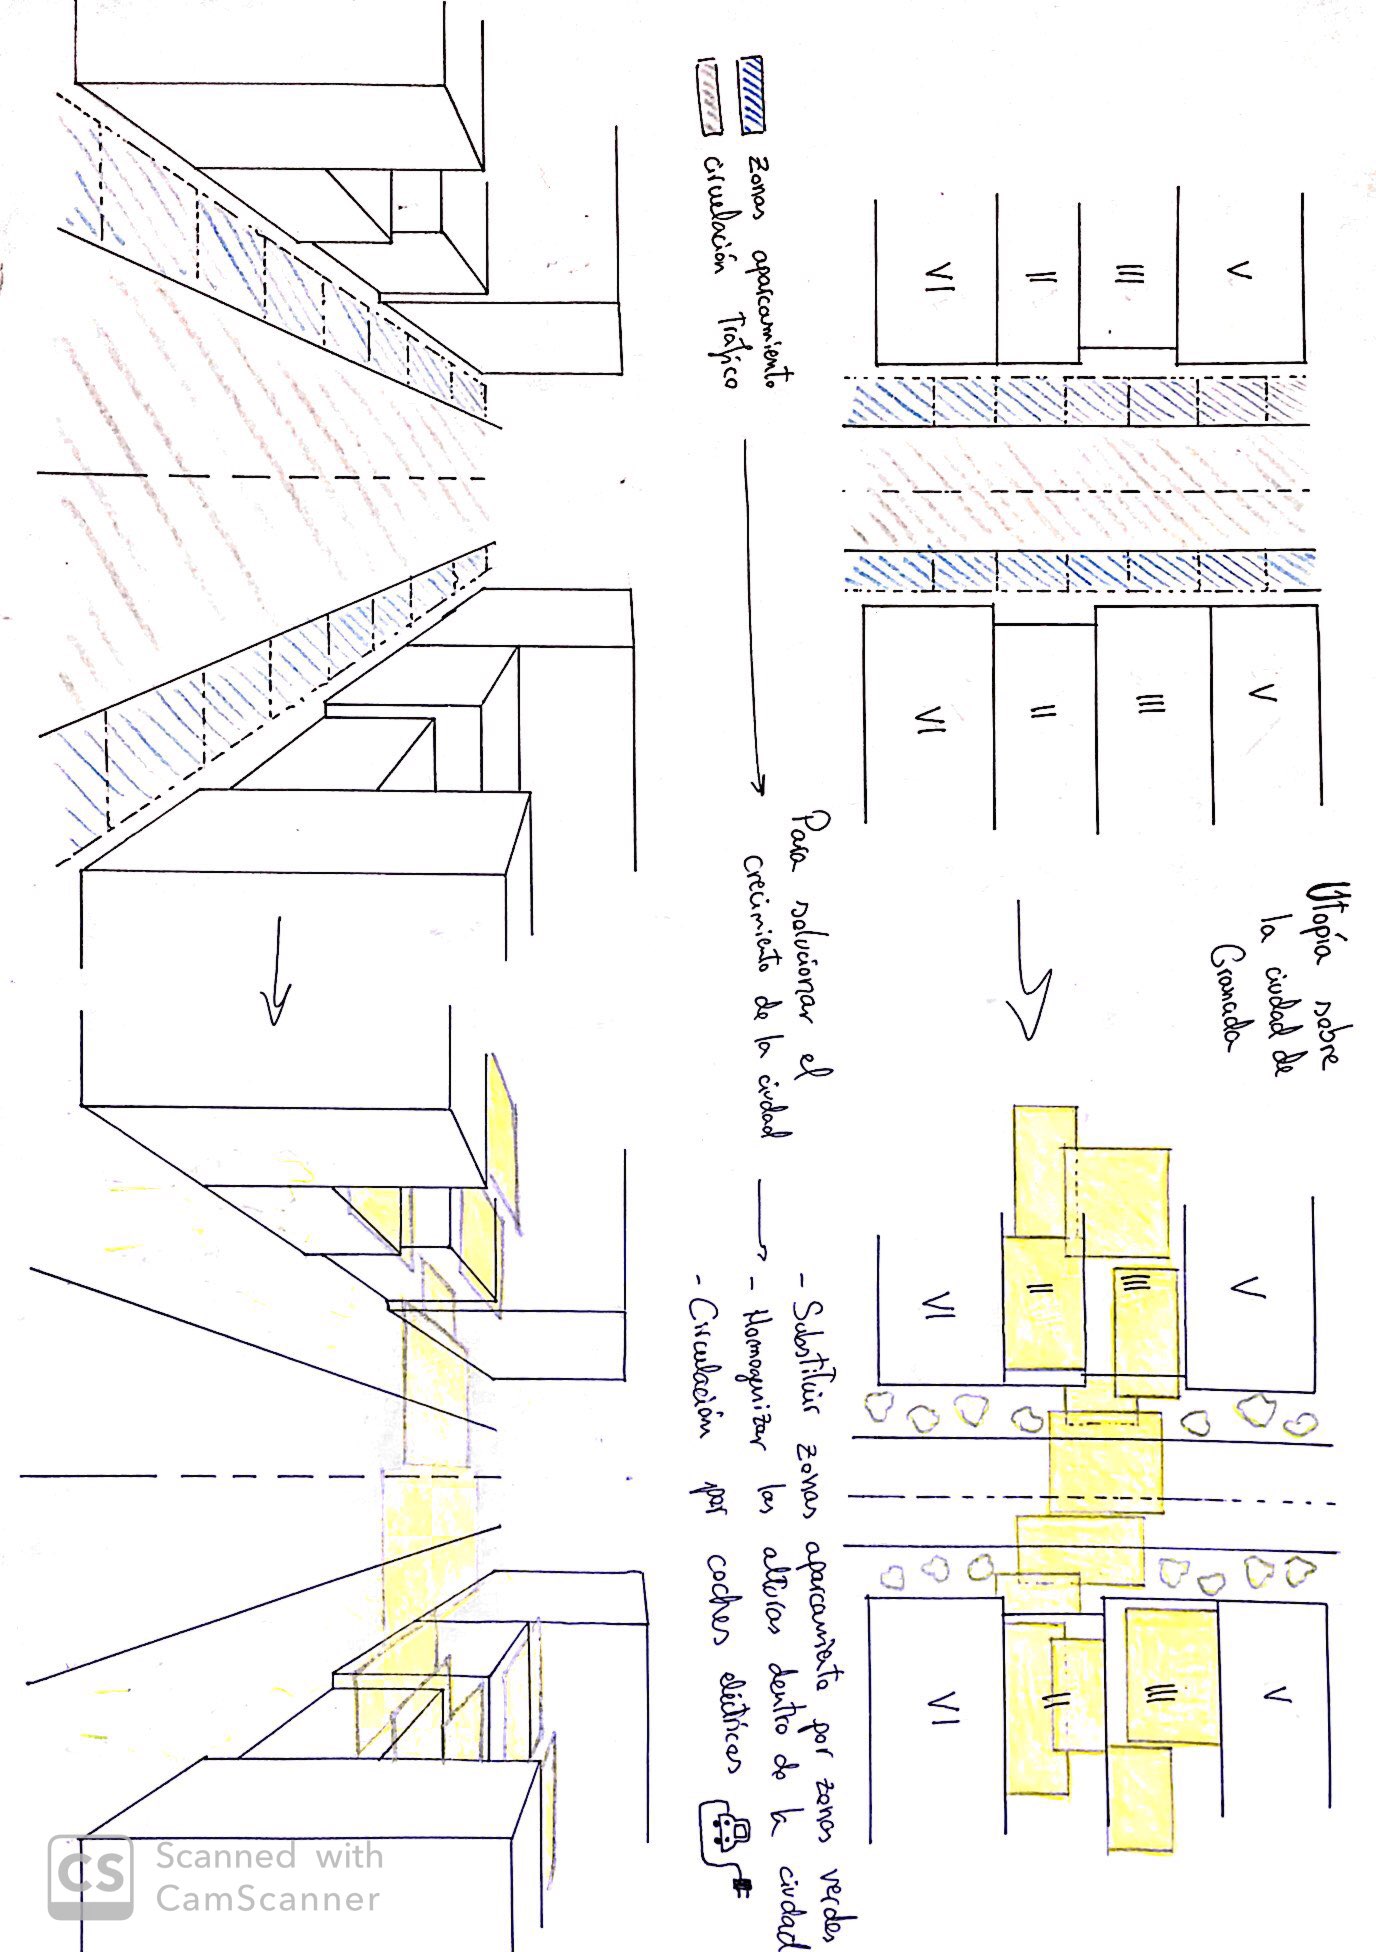 Utopía sobre
la ciudad de
Granada
VI
II
III
V
VI
II
III
V
VI
II
III
V
VI
II
III
V
Zonas aparcamiento
circulación Trafico
Para solucionar el
crecimiento de la ciudad
- Substituir zonas aparcamiento por zonas verdes
- Homogenizar las alturas dentro de la ciudad
- Circulación por coches eléctricos
CS
Scanned with
CamScanner